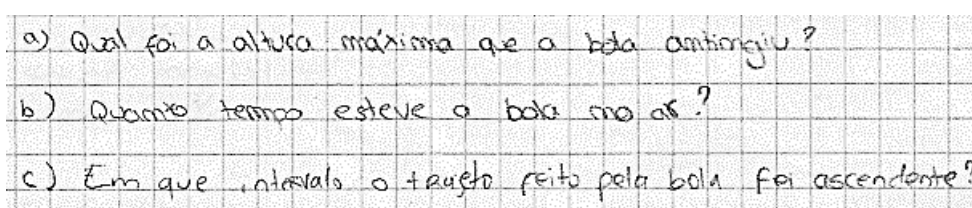 a) Qual foi a altura máxima que a bola antingiu?
b) Quanto tempo esteve a bola no ar?
c) Em que intervalo o trajeto feito pela bola foi ascendente?